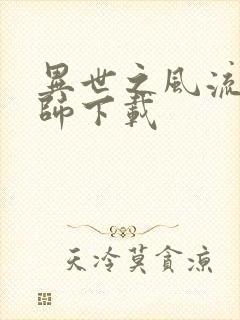 異世之風流
師下載
天冷莫貪涼